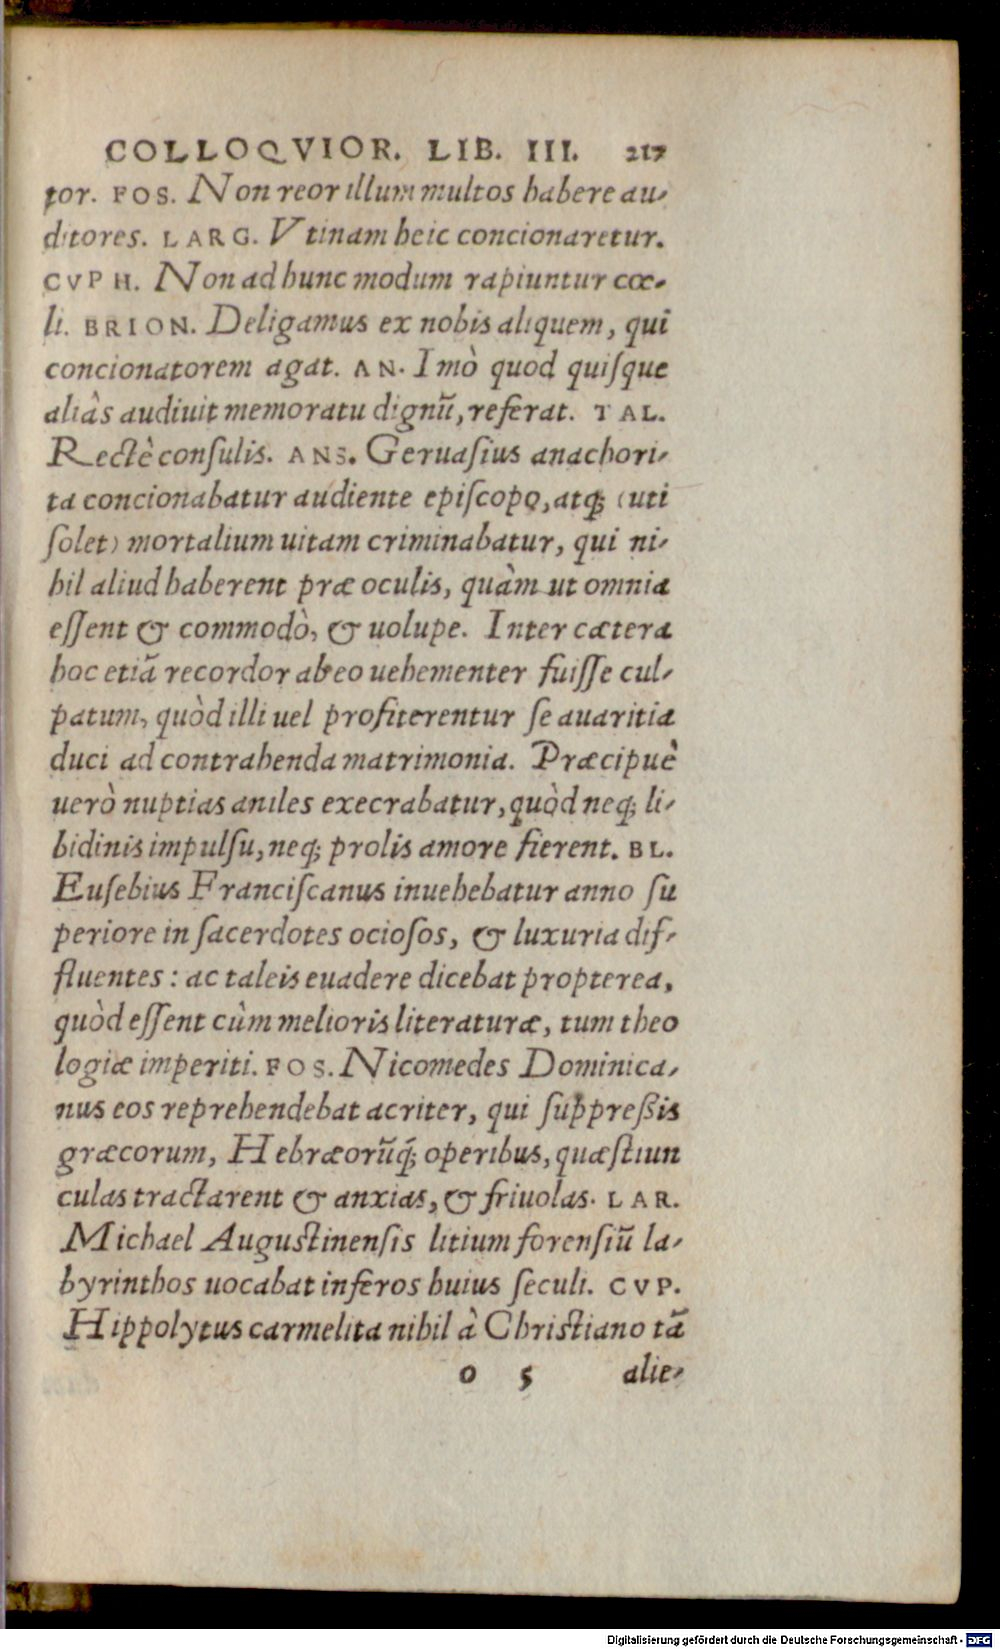 COLLOQVIOR. LIB. III. 217
tor. FOS. Non reor illum multos habere au-
ditores. LARG. Vtinam heic concionaretur.
CVPH. Non ad hunc modum rapiuntur cœ-
li. BRION. Deligamus ex nobis aliquem, qui
concionatorem agat. AN. Imò quod quiſque
aliâs audiuit memoratu dignũ, referat. TAL.
Rectè conſulis. ANS. Geruaſius anachori-
ta concionabatur audiente epiſcopo, atq; (uti
ſolet) mortalium uitam criminabatur, qui ni-
hil aliud haberent præ oculis, quàm ut omnia
eſſent & commodò, & uolupe. Inter cætera
hoc etiã recordor ab eo uehementer fuiſſe cul-
patum, quòd illi uel profiterentur ſe auaritia
duci ad contrahenda matrimonia. Præcipuè
uerò nuptias aniles execrabatur, quòd neq; li-
bidinis impulſu, neq; prolis amore fierent. BL.
Euſebius Franciſcanus inuehebatur anno ſu
periore in ſacerdotes ocioſos, & luxuria dif-
fluentes: ac taleis euadere dicebat propterea,
quòd eſſent cùm melioris literaturæ, tum theo
logiæ imperiti. FOS. Nicomedes Dominica-
nus eos reprehendebat acriter, qui ſuppreßis
græcorum, Hebræorũq́; operibus, quæſtiun
culas tractarent & anxias, & friuolas. LAR.
Michael Auguſtinenſis litium forenſiũ la-
byrinthos uocabat inferos huius ſeculi. CVP.
Hippolytus carmelita nihil à Chriſtiano tã
o 5 alie-
Digitalisierung gefördert durch die Deutsche Forschungsgemeinschaft - DFG